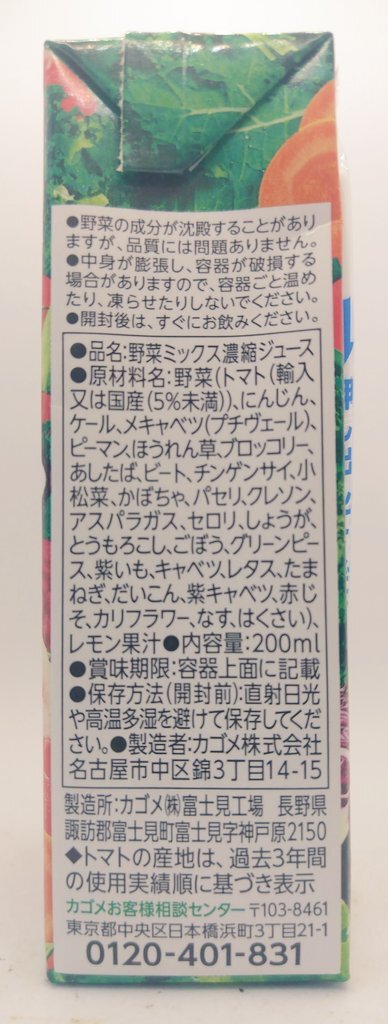 ●野菜の成分が沈殿することがあり
ますが、品質には問題ありません。
●中身が膨張し、容器が破損する
場合がありますので、容器ごと温め
たり、凍らせたりしないでください。
●開封後は、すぐにお飲みください。
●品名:野菜ミックス濃縮ジュース
●原材料名:野菜(トマト(輸入
又は国産(5%未満))、にんじん、
ケール、メキャベツ(プチヴェール)、
ピーマン、ほうれん草、ブロッコリー、
あしたば、ビート、チンゲンサイ、小
松菜、かぼちゃ、パセリ、クレソン、
アスパラガス、セロリ、しょうが、
とうもろこし、ごぼう、グリーンピー
ス、紫いも、キャベツ、レタス、たま
ねぎ、だいこん、紫キャベツ、赤じ
そ、カリフラワー、なす、はくさい)、
レモン果汁●内容量:200ml
●賞味期限:容器上面に記載
●保存方法(開封前):直射日光
や高温多湿を避けて保存してくだ
さい。●製造者:カゴメ株式会社
名古屋市中区錦3丁目14-15
製造所:カゴメ㈱富士見工場 長野県
諏訪郡富士見町富士見字神戸原2150
◆トマトの産地は、過去3年間
の使用実績順に基づき表示
カゴメお客様相談センター 〒103-8461
東京都中央区日本橋浜町3丁目21-1
0120-401-831